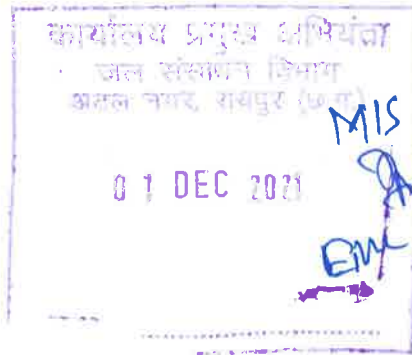 कार्यालय प्रमुख अभियंता
जल संसाधन विभाग
अटल नगर, रायपुर (छ.ग.)
MIS
01 DEC 2021